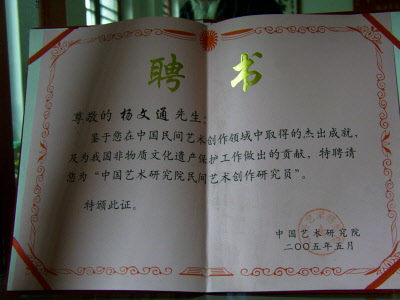 聘书
尊敬的 杨文通 先生:
鉴于您在中国民间艺术创作领域中取得的杰出成就,
及为我国非物质文化遗产保护工作做出的贡献,特聘请
您为“中国艺术研究院民间艺术创作研究员”。
特颁此证。
中国艺术研究院
二〇〇五年五月